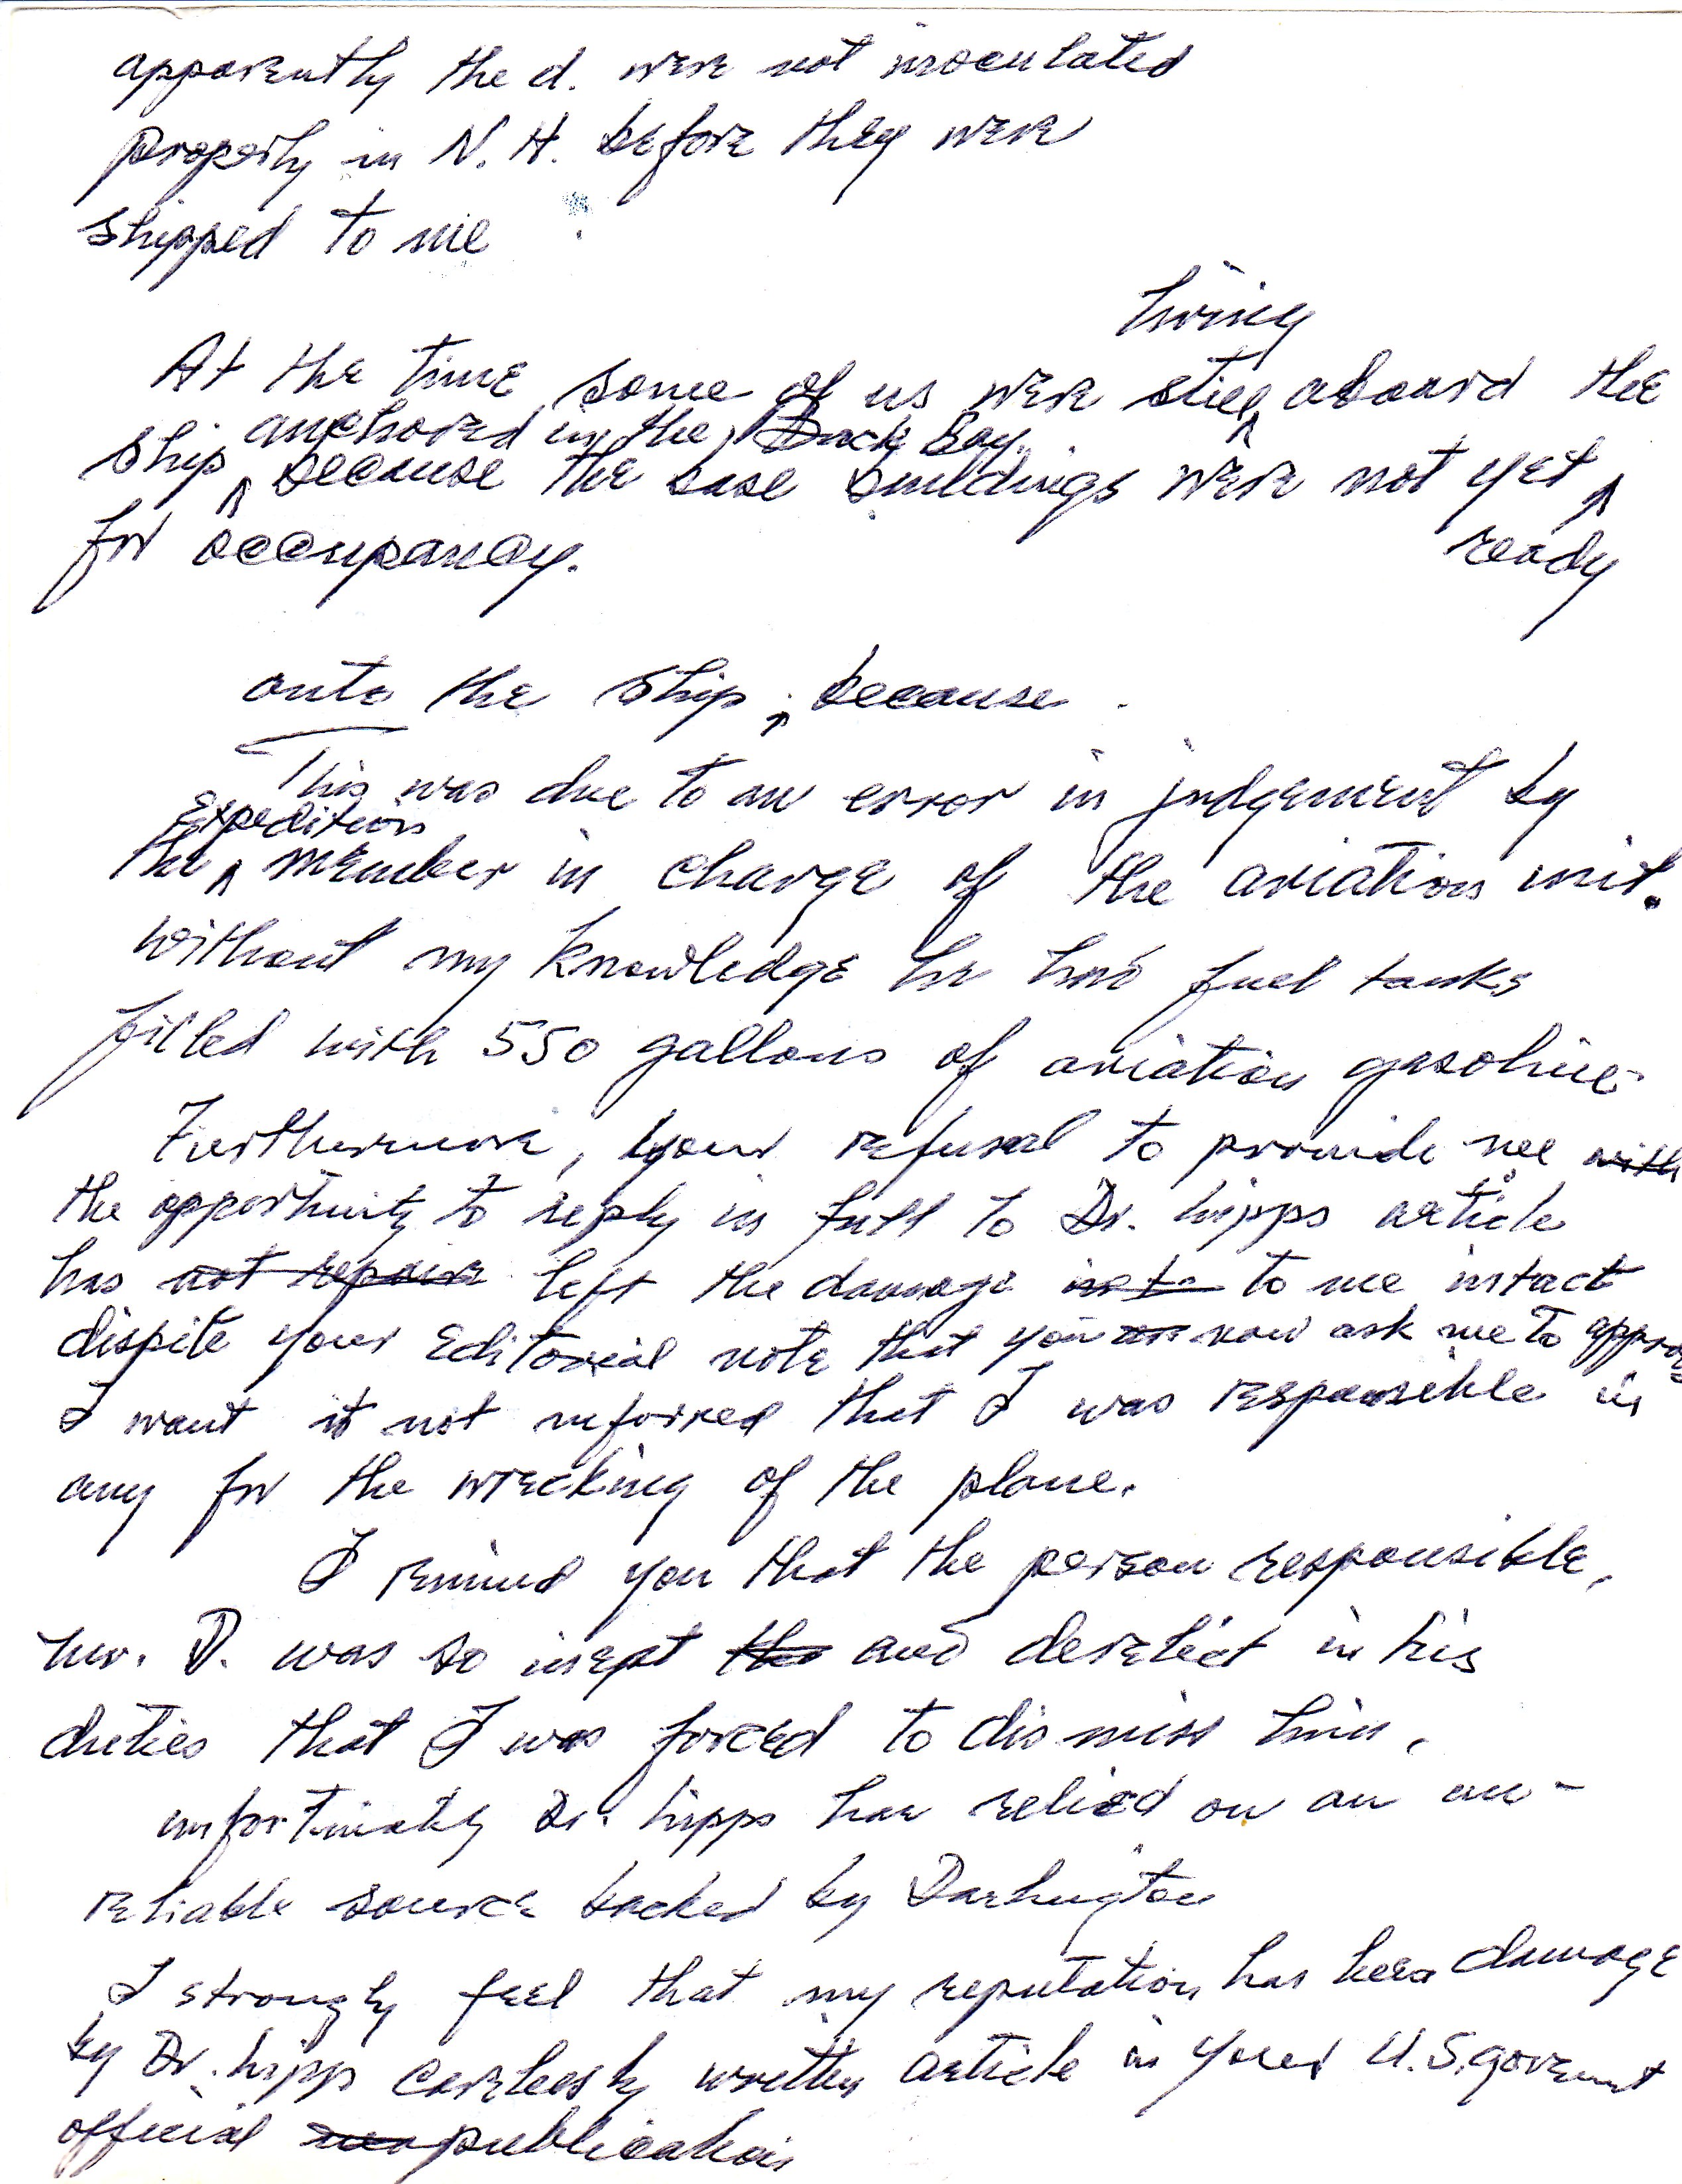 apparently the d. were not inoculated
properly in N. H. before they were
shipped to me
living
At the time some of us were still aboard the
anchored in the Back Bay
ship because the base buildings were not yet
for occupancy. ready
onto the ship, because
This was due to an error in judgement by
Expedition
the member in charge of the aviation unit.
Without my knowledge he had fuel tanks
filled with 550 gallons of aviation gasoline
Furthermore, your refusal to provide me with
the opportunity to reply in full to Dr. Lipps article
has not repair left the damage to me intact
dispite your Editorial note that you now ask me to
I want it not inforred that I was responsible in
any for the wrecking of the plane.
I remind you that the person responsible,
Mr. D. was so inept the and derelict in his
duties that I was forced to dismiss him.
unfortunately Dr. Lipps has relied on an un-
reliable source backed by Darlington
I strongly feel that my reputation has been damage
by Dr. Lipps carelessly written article in your U.S. goverment
official publication